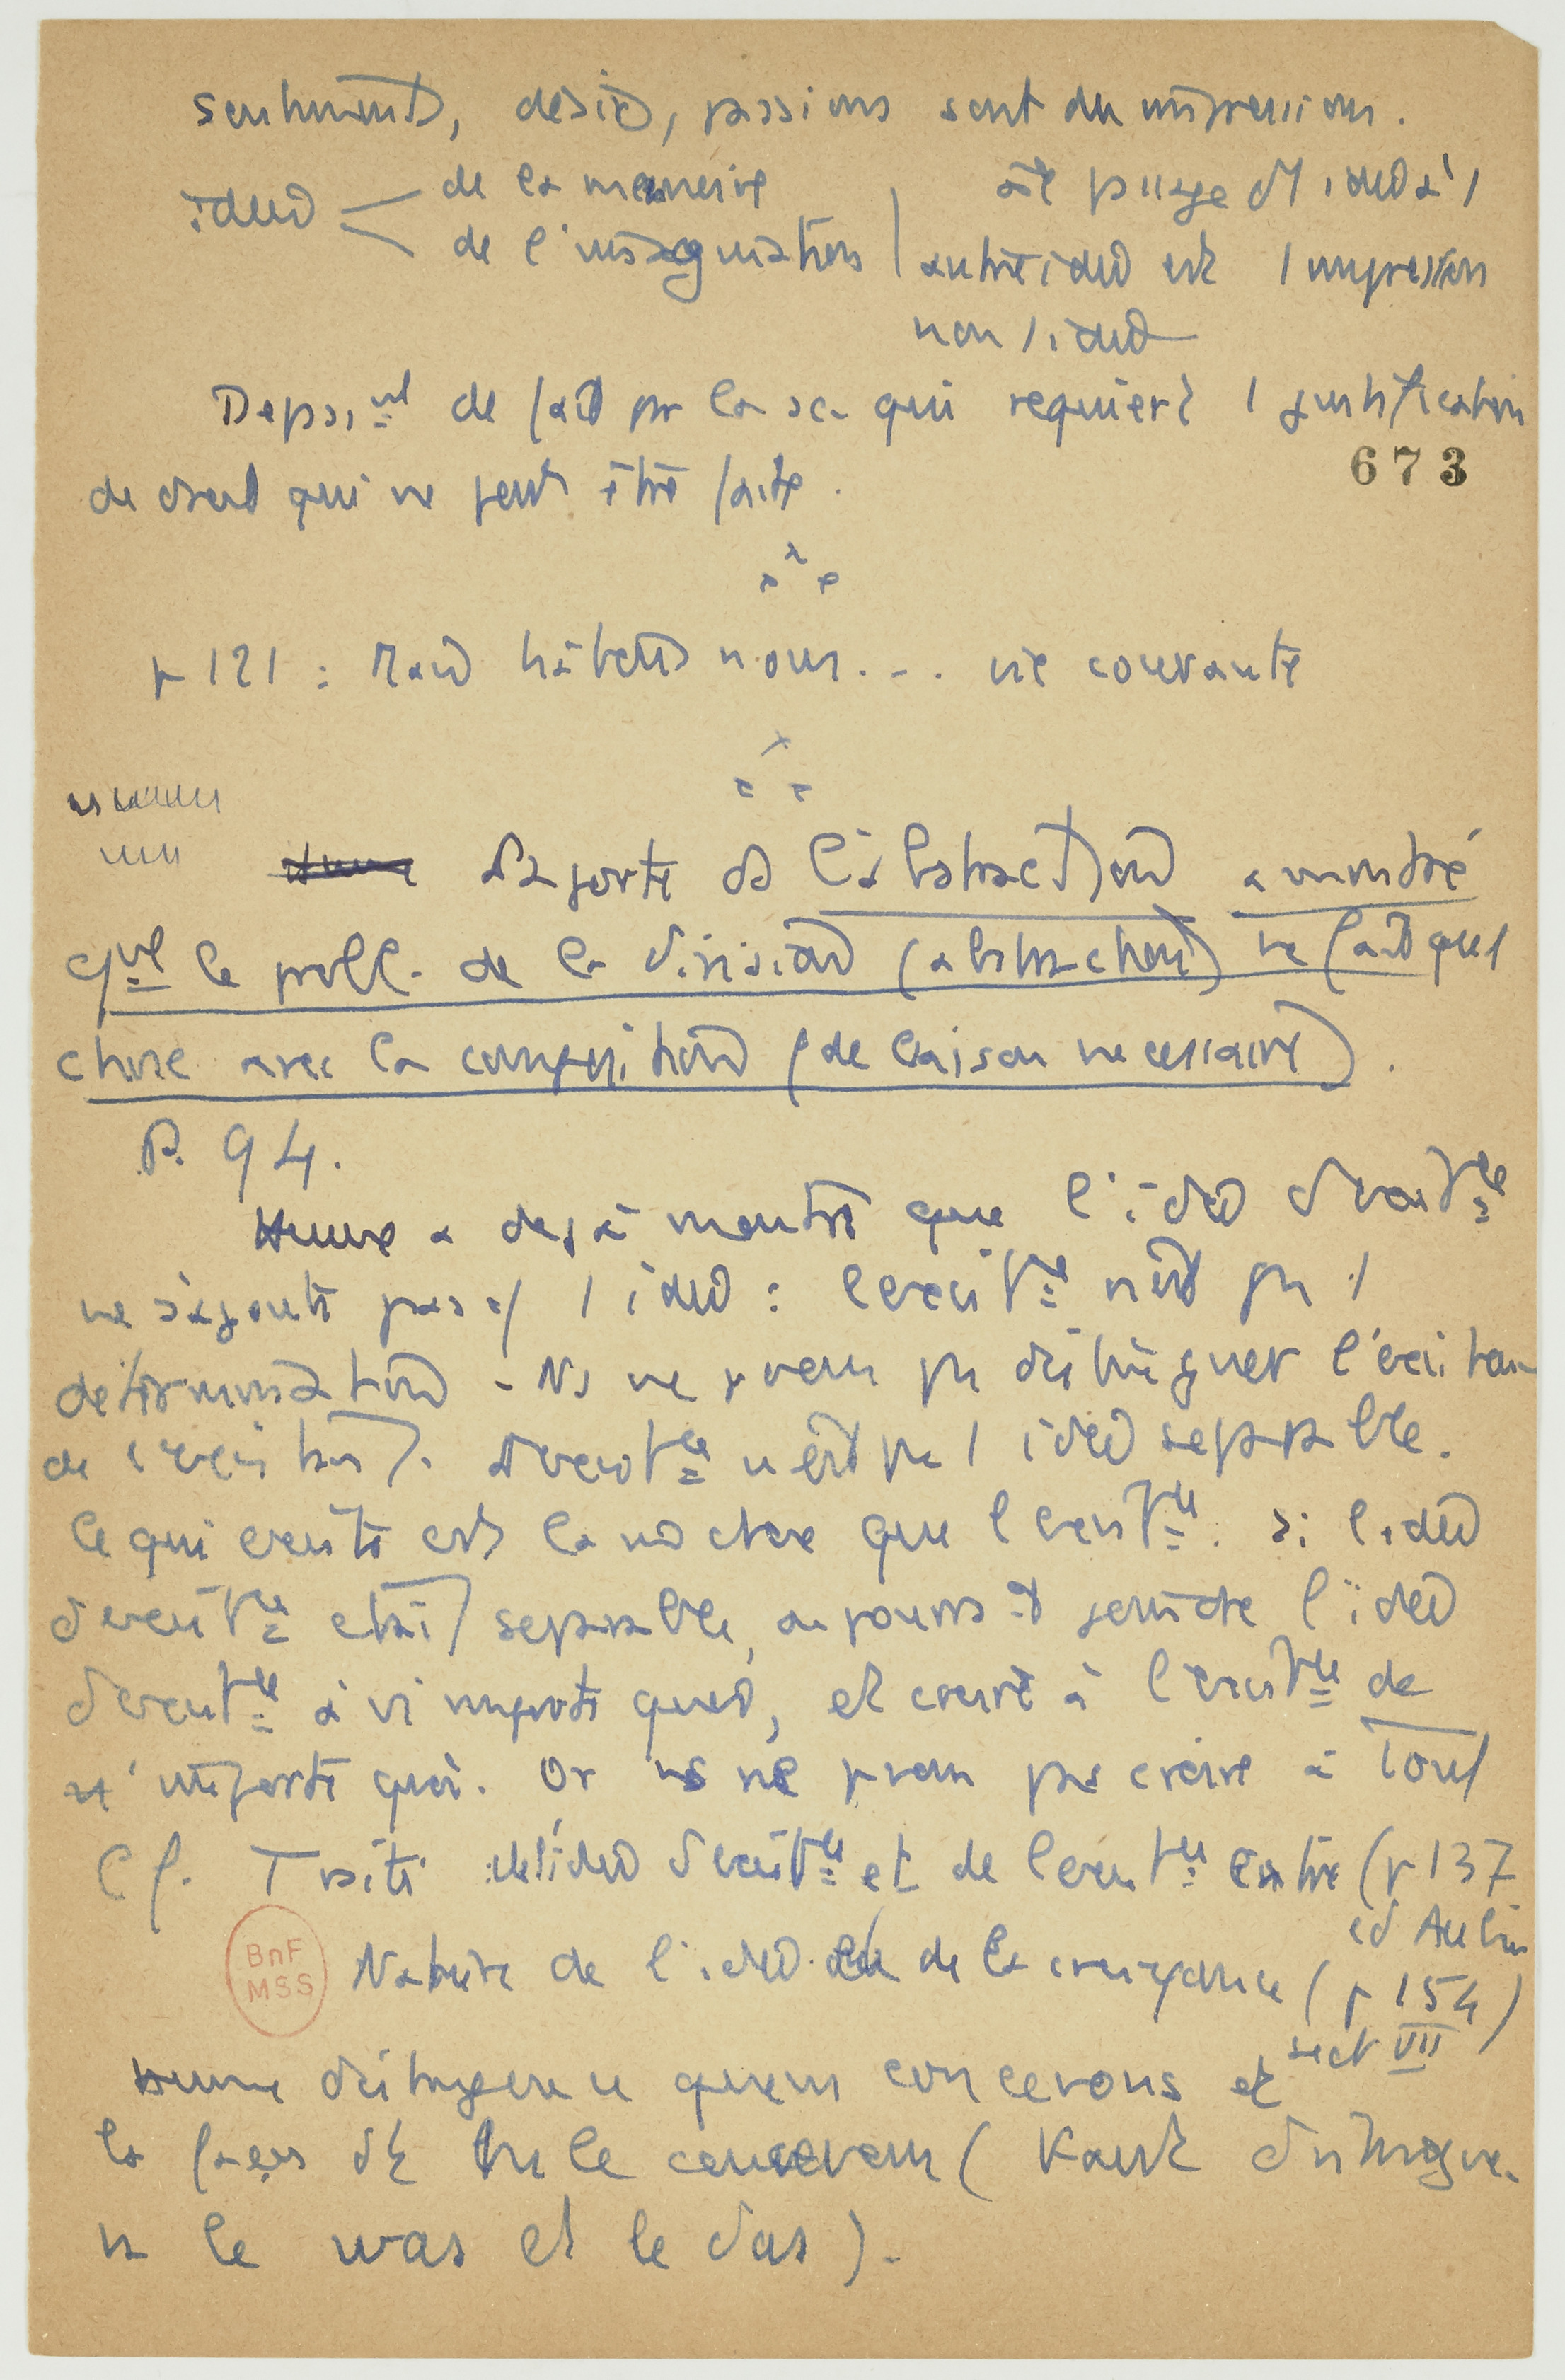 sentiments, désirs, passions sont des impressions.
idées
de la mémoire
de l'imagination
passage d'1 idée à 1
autre idée est 1 impression
non 1 idée
Dépassᵗ de fait par la sc. qui requiert 1 justification
de droit qui ne peut être faite.
673
p 121 : Mais hâtons nous... vie courante
Laporte ds l'abstraction a montré
que le probl. de la division (abstraction) ne fait qu'1
chose avec la composition (de liaison nécessaire).
P. 94.
Hume a déjà montré que l'idée d'existᶜᵉ
ne s'ajoute pas à 1 idée : l'existᶜᵉ n'est pas 1
détermination - Ns ne pvons pas distinguer l'existan
de l'existant. L'existᶜᵉ n'est pas 1 idée séparable.
Ce qui existe est la m chose que l'existᶜᵉ. Si l'idée
d'existᶜᵉ était séparable, on pourrait joindre l'idée
d'existᶜᵉ à n'importe quoi, et croire à l'existᶜᵉ de
n'importe quoi. Or ns ne pvons pas croire à tout
Cf. Traité de l'idée d'existᶜᵉ et de l'existᶜᵉ extre (p 137
éd Aubier
Nature de l'idée ou de la croyance (p 154)
sect VII
BnF
MSS
Hume distingue ce que ns concevons et
la façon dt ns le concevons (Kant distingue
le was et le das).